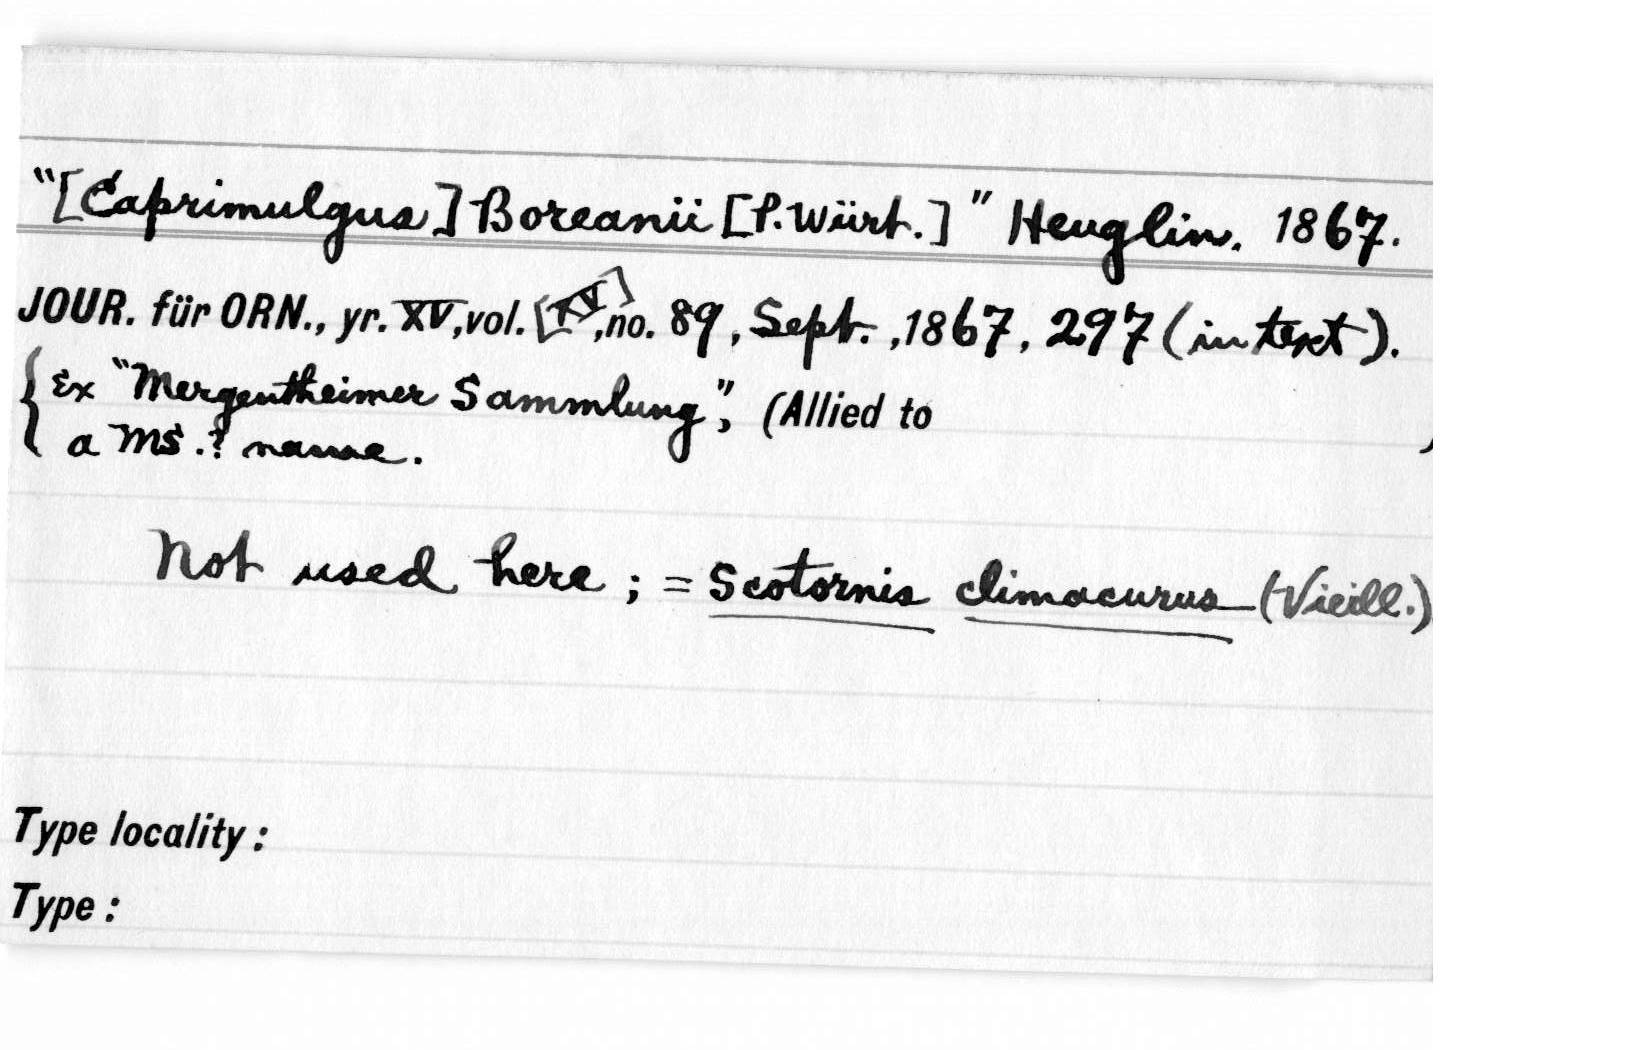 "[Caprimulgus] Boreanii [P. Würt.]" Heuglin. 1867.
JOUR. für ORN., yr. XV, vol. [XV], no. 89, Sept., 1867, 297 (in text).
{ Ex "Mergentheimer Sammlung"; (Allied to )
a MS.? name.
Not used here; = Scotornis climacurus (Vieill.)
Type locality:
Type: